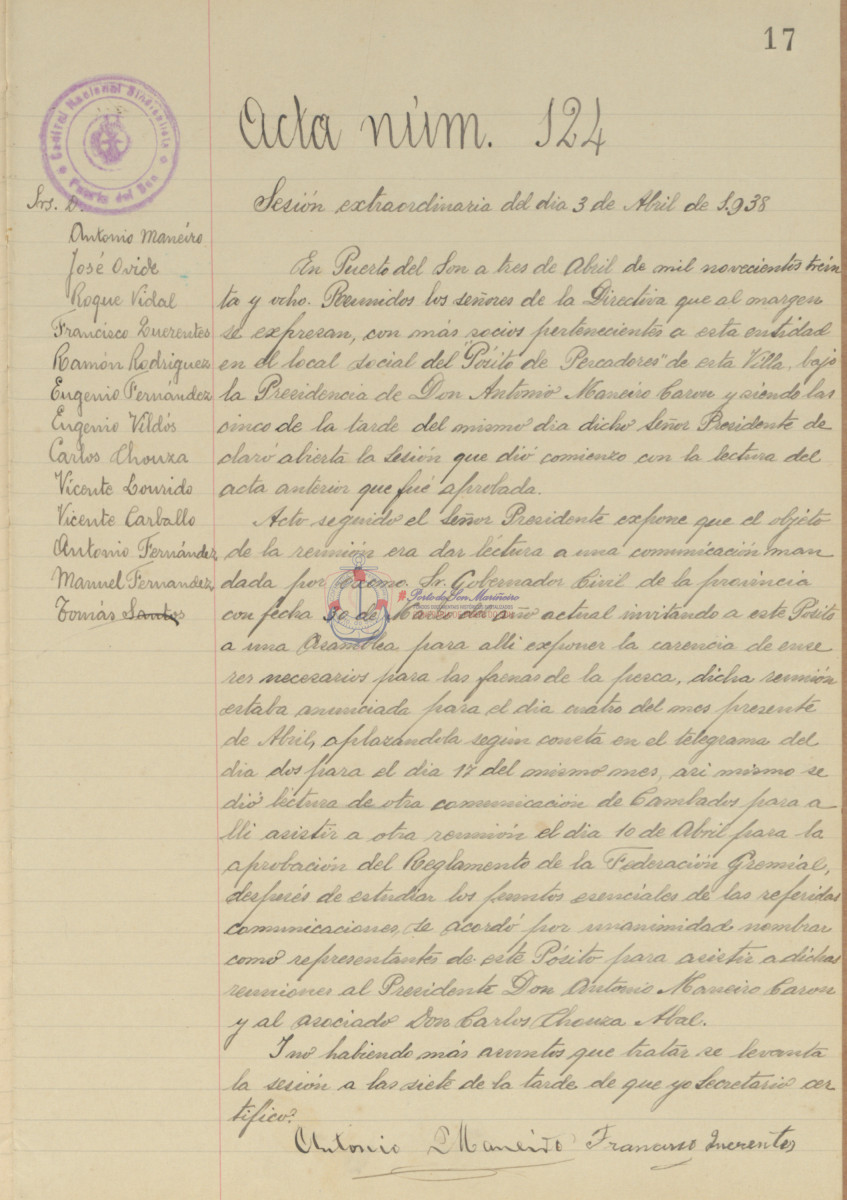 17
Central Nacional Sindicalista
Puerto del Son
Acta núm. 124
Sesión extraordinaria del dia 3 de Abril de 1.938
Srs. D.
Antonio Maneiro
José Ovide
Roque Vidal
Francisco Querentes
Ramón Rodriguez
Eugenio Fernández
Eugenio Vildós
Carlos Chouza
Vicente Lourido
Vicente Carballo
Antonio Fernández
Manuel Fernandez
Tomás Santos
En Puerto del Son a tres de Abril de mil novecientos trein
ta y ocho. Reunidos los señores de la Directiva que al margen
se expresan, con más socios pertenecientes a esta entidad
en el local social del "Pósito de Pescadores" de esta Villa, bajo
la Presidencia de Don Antonio Maneiro Caron y siendo las
cinco de la tarde del mismo dia dicho Señor Presidente de
claró abierta la sesión que dió comienzo con la lectura del
acta anterior que fué aprobada.
Acto seguido el Señor Presidente expone que el objéto
de la reunión era dar léctura a una comunicación man
dada por Excmo. Sr. Gobernador Civil de la provincia
Porto do Son Mariñeiro
con fecha 30 de Marzo del año actual invitando a este Pósito
a una Asamblea para alli exponer la carencia de ense
res necesarios para las faenas de la pesca, dicha reunión
estaba anunciada para el dia cuatro del mes presente
de Abril, aplazandola según consta en el telegrama del
dia dos para el dia 17 del mismo mes, asi mismo se
dió léctura de otra comunicación de Cambados para a
lli asistir a otra reunión el dia 10 de Abril para la
aprobación del Reglamento de la Federación Gremial,
después de estudiar los puntos esenciales de las referidas
comunicaciones, se acordó por unanimidad nombrar
como representantes de este Pósito para asistir a dichas
reuniones al Presidente Don Antonio Maneiro Caron
y al asociado Don Carlos Chouza Abal.
I no habiendo más asuntos que tratar se levanta
la sesión a las siete de la tarde de que yo Secretario cer
tifico.
Antonio Maneiro Francisco Querentes